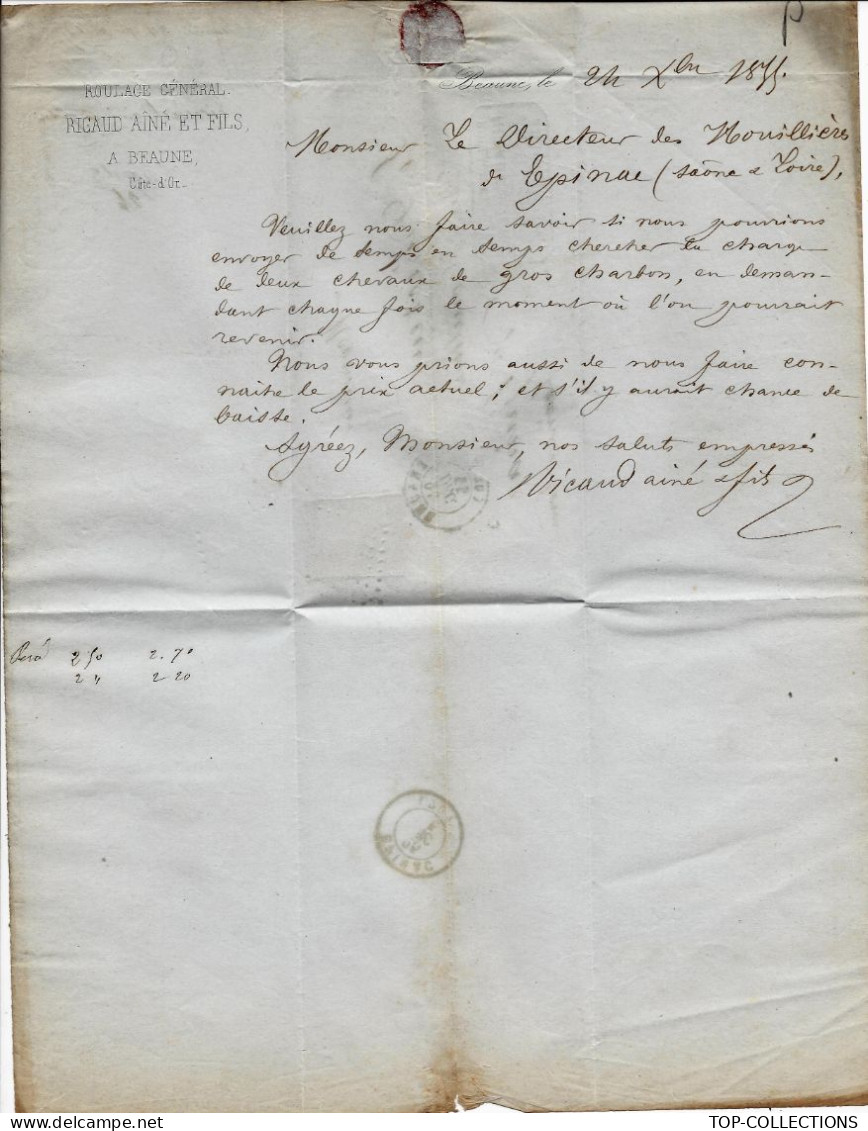 P
ROULAGE GÉNÉRAL.
RIGAUD AÎNÉ ET FILS,
A BEAUNE,
Côte-d'Or.
Beaune, le 24 Xbre 1855.
Monsieur Le Directeur des Houillières
de Epinac (Saône & Loire),
Veuillez nous faire savoir si nous pourrions
envoyer de temps en temps chercher la charge
de deux chevaux de gros charbon, en deman-
dant chaque fois le moment où l'on pourrait
revenir.
Nous vous prions aussi de nous faire con-
naître le prix actuel; et s'il y aurait chance de
baisse.
Agréez, Monsieur, nos saluts empressés
Ricaud ainé & fils
2 50 2.70
2 " 2 20
TOP-COLLECTIONS